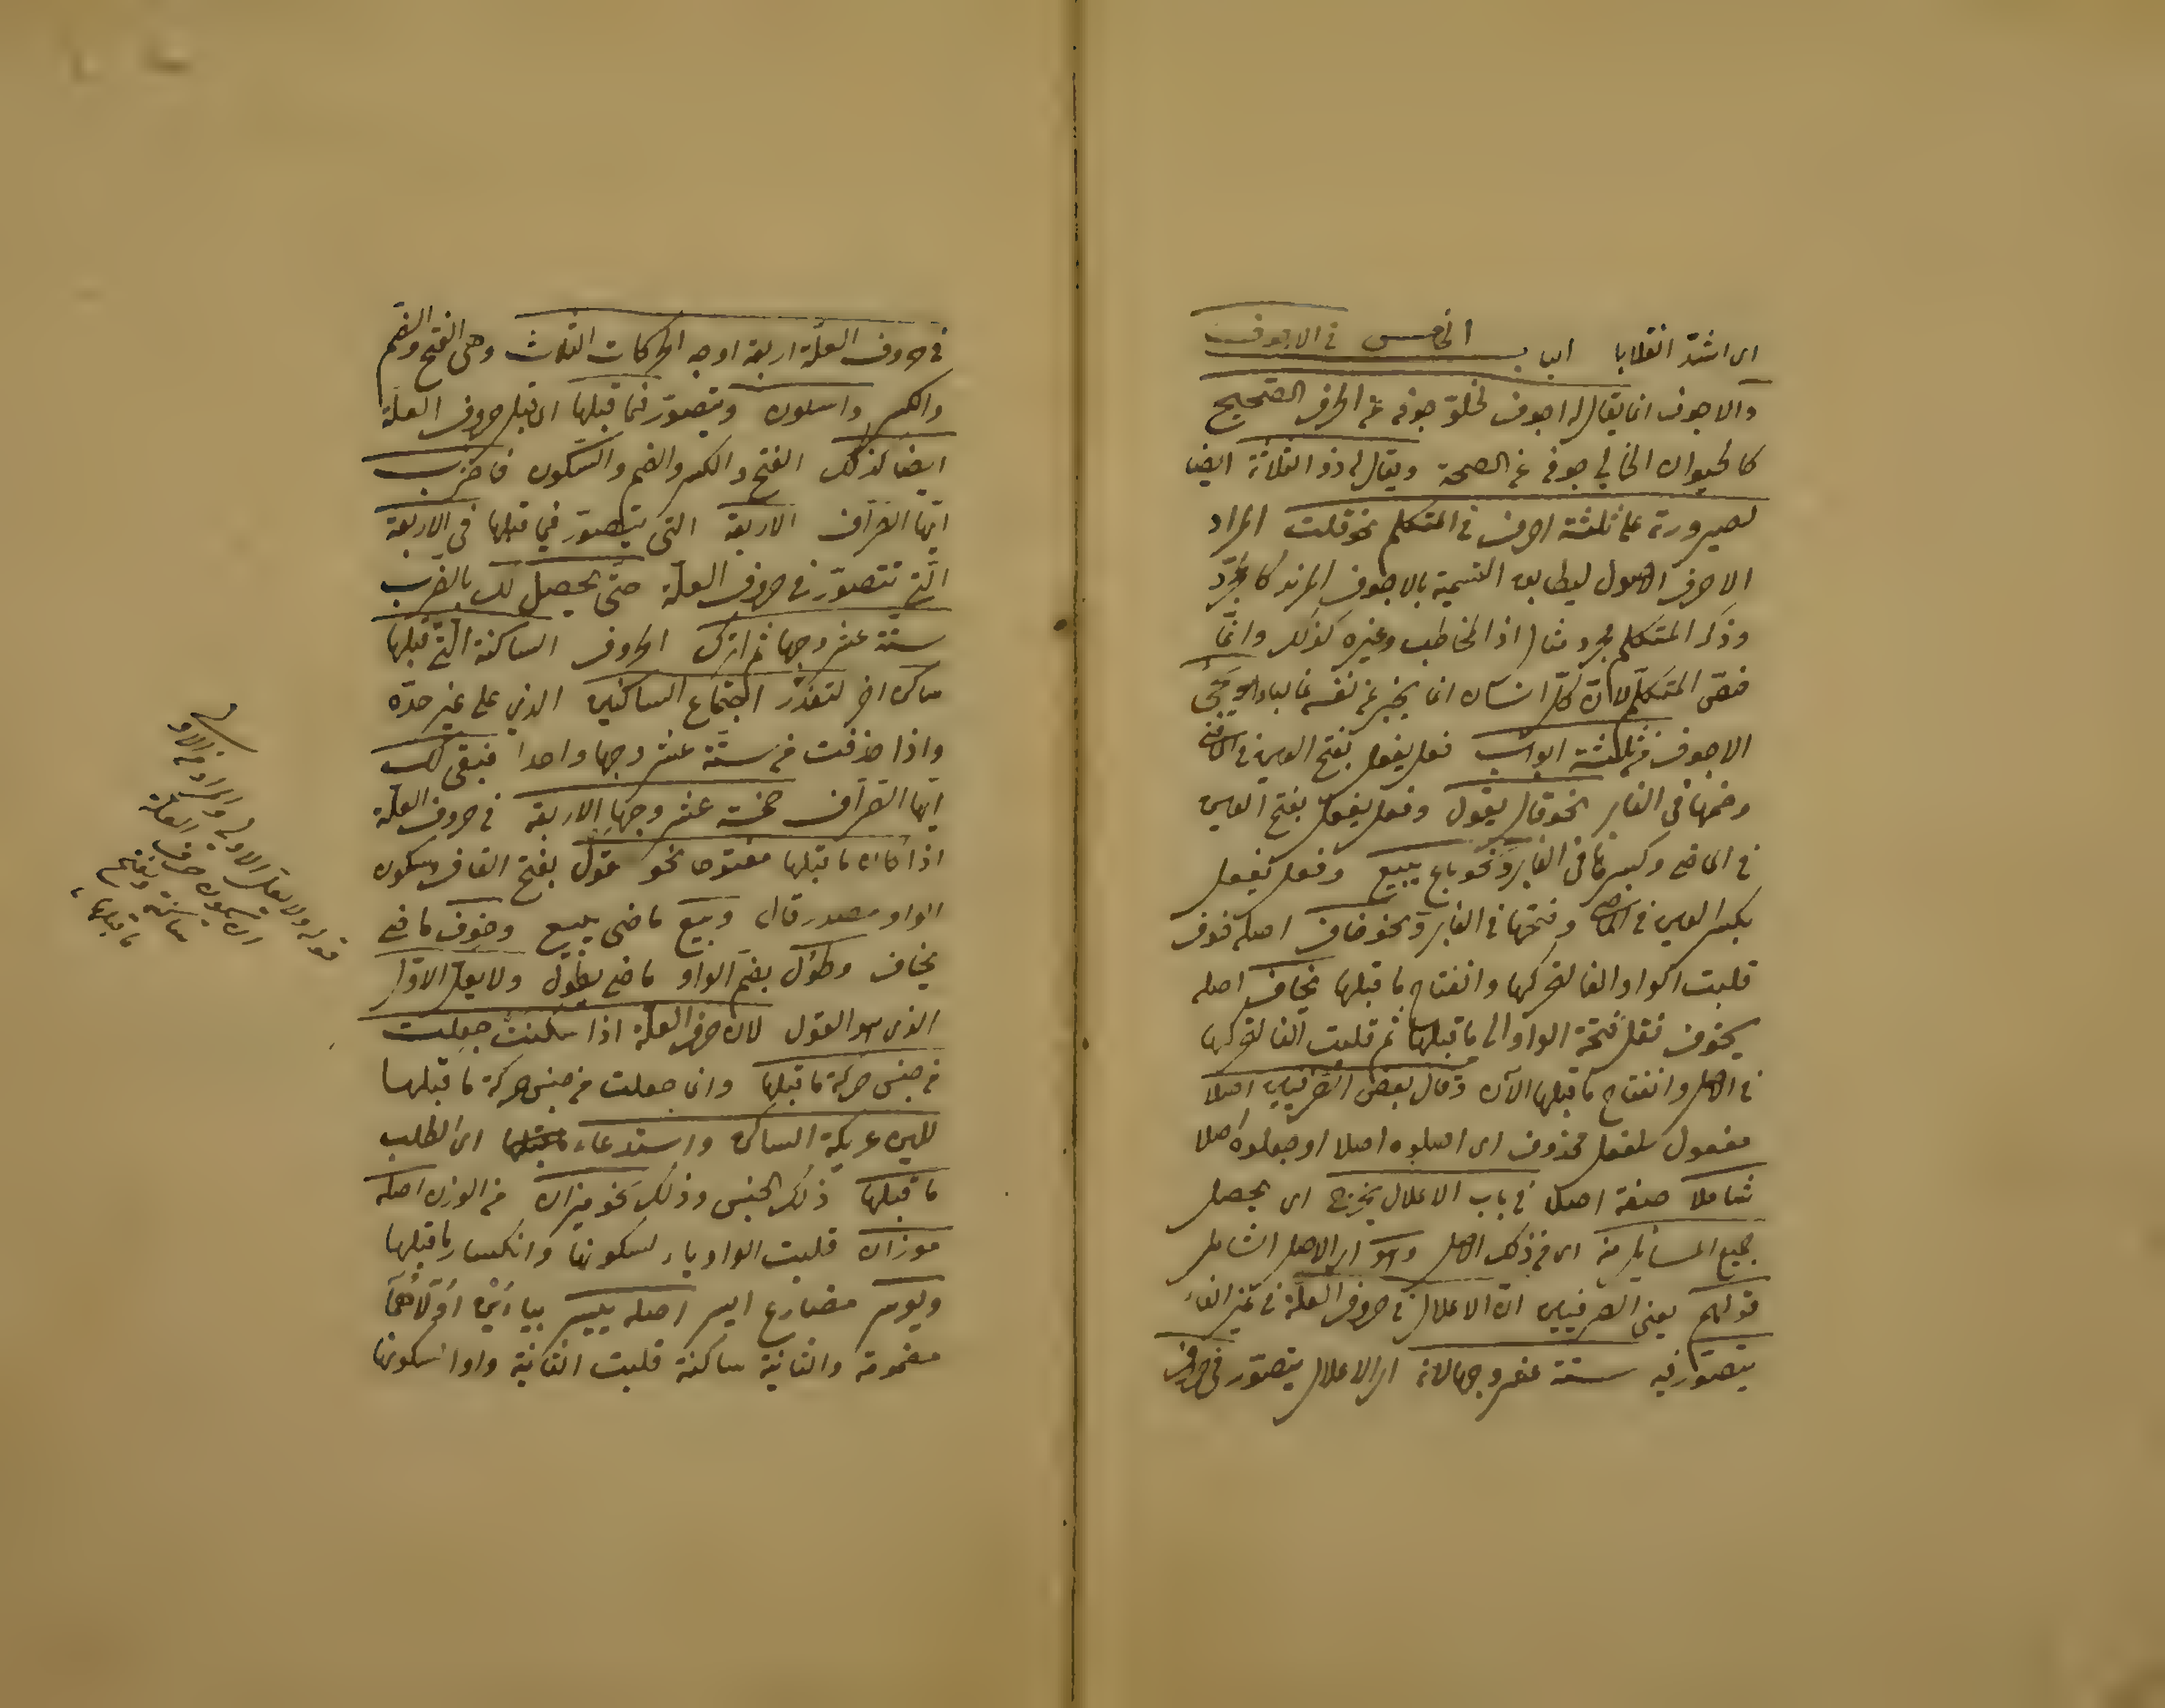 اى اشدّ انقلابا الباب الخامس فى الاجوف
والاجوف انما يقال له اجوف لخلوّ جوفه عن الحرف الصحيح
كالحيوان الخالى جوفه عن الصحة ويقال له ذو الثلاثة ايضا
لصيرورته على ثلثة احرف فى المتكلم نحو قلت المراد
الاحرف الاصول ليطابق التسمية بالاجوف المزيد كالمجرّد
وذكر المتكلم مجرد مثال اذ المخاطب وغيره كذلك وانّما
خصّ المتكلم لانّ كلّ انسان انما يخبر عن نفسه غالبا ويجئ
الاجوف من ثلثة ابواب فعل يفعل بفتح العين فى الماضى
وضمها فى الغابر نحو قال يقول وفعل يفعل بفتح العين
فى الماضى وكسرها فى الغابر نحو باع يبيع وفعل يفعل
بكسر العين فى الماضى وفتحها فى الغابر نحو خاف اصله خوف
قلبت الواو الفا لتحركها وانفتاح ما قبلها يخاف اصله
يخوف نقل فتحة الواو الى ما قبلها ثم قلبت الفا لتحركها
فى الاصل وانفتاح ما قبلها الآن وقال بعض الصرفيين اصلا
مفعول لفعل محذوف اى اصلوه اصلا او جعلوه اصلا
شاملا صفة اصلا فى باب الاعلال يخرج اى يحصل
جميع المسائل منه اى من ذلك الاصل وهو اى الاصل الشامل
قولهم يعنى الصرفيين انّ الاعلال فى حروف العلّة فى غير الفاء
يتصوّر فيه ستة عشر وجها لانه اى الاعلال يتصوّر فى حروف
فى حروف العلّة اربعة اوجه الحركات الثلاث وهى الفتح والضم
والكسر والسكون ويتصوّر فيما قبلها اى قبل حروف العلة
ايضا كذلك الفتح والكسر والضم والسّكون فاضرب
ايّها الصرّاف الاربعة التى يتصوّر فيما قبلها فى الاربعة
الّتى تتصوّر فى حروف العلّة حتّى يحصل لك بالضرب
ستّة عشر وجها ثم اترك الحروف الساكنة الّتى قبلها
ساكن اخر لتعذّر اجتماع الساكنين الذى على غير حدّه
واذا حذفت من ستّة عشر وجها واحدا فبقى لك
ايّها الصرّاف خمسة عشر وجها الاربعة فى حروف العلّة
اذا كان ما قبلها مفتوحا نحو قول بفتح القاف وسكون
الواو مصدر قال وبيع ماضى يبيع وخوف ماضى
يخاف وطول بضمّ الواو ماضى يطول ولا يعلّ الاوّل
الذى هو القول لان حرف العلة اذا سكنت جعلت
من جنس حركة ما قبلها وانما جعلت من جنس حركة ما قبلها
للين عريكة الساكن واستدعاء ما قبلها اى الطلب
ما قبلها ذلك الجنس وذلك نحو ميزان من الوزن اصله
موزان قلبت الواو ياء لسكونها وانكسار ما قبلها
ويوسر مضارع ايسر اصله ييسر بيائين اوّلاهما
مضمومة والثانية ساكنة قلبت الثانية واوا لسكونها
قوله ولا يعل الاول
المراد من الاول
ان يكون حرف العلة
ساكنة وينفتح
ما قبلها